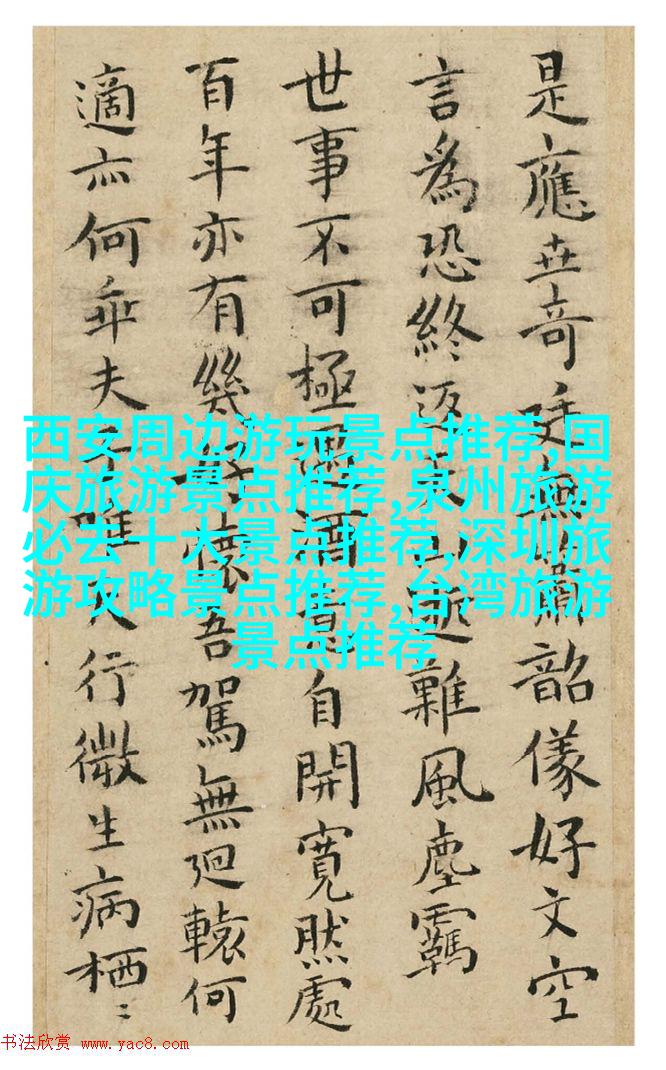 是應世奇無韶儀好文空
言為恐終難風塵羈
世事不可極酒自開寬然處
百年亦有幾懷吾駕無迴轅何
適亦何乖夫行微生病栖〻
西安周边游玩景点推荐,国
庆旅游景点推荐,泉州旅游
必去十大景点推荐,深圳旅
游攻略景点推荐,台湾旅游
景点推荐
书法欣赏 www.yac8.com